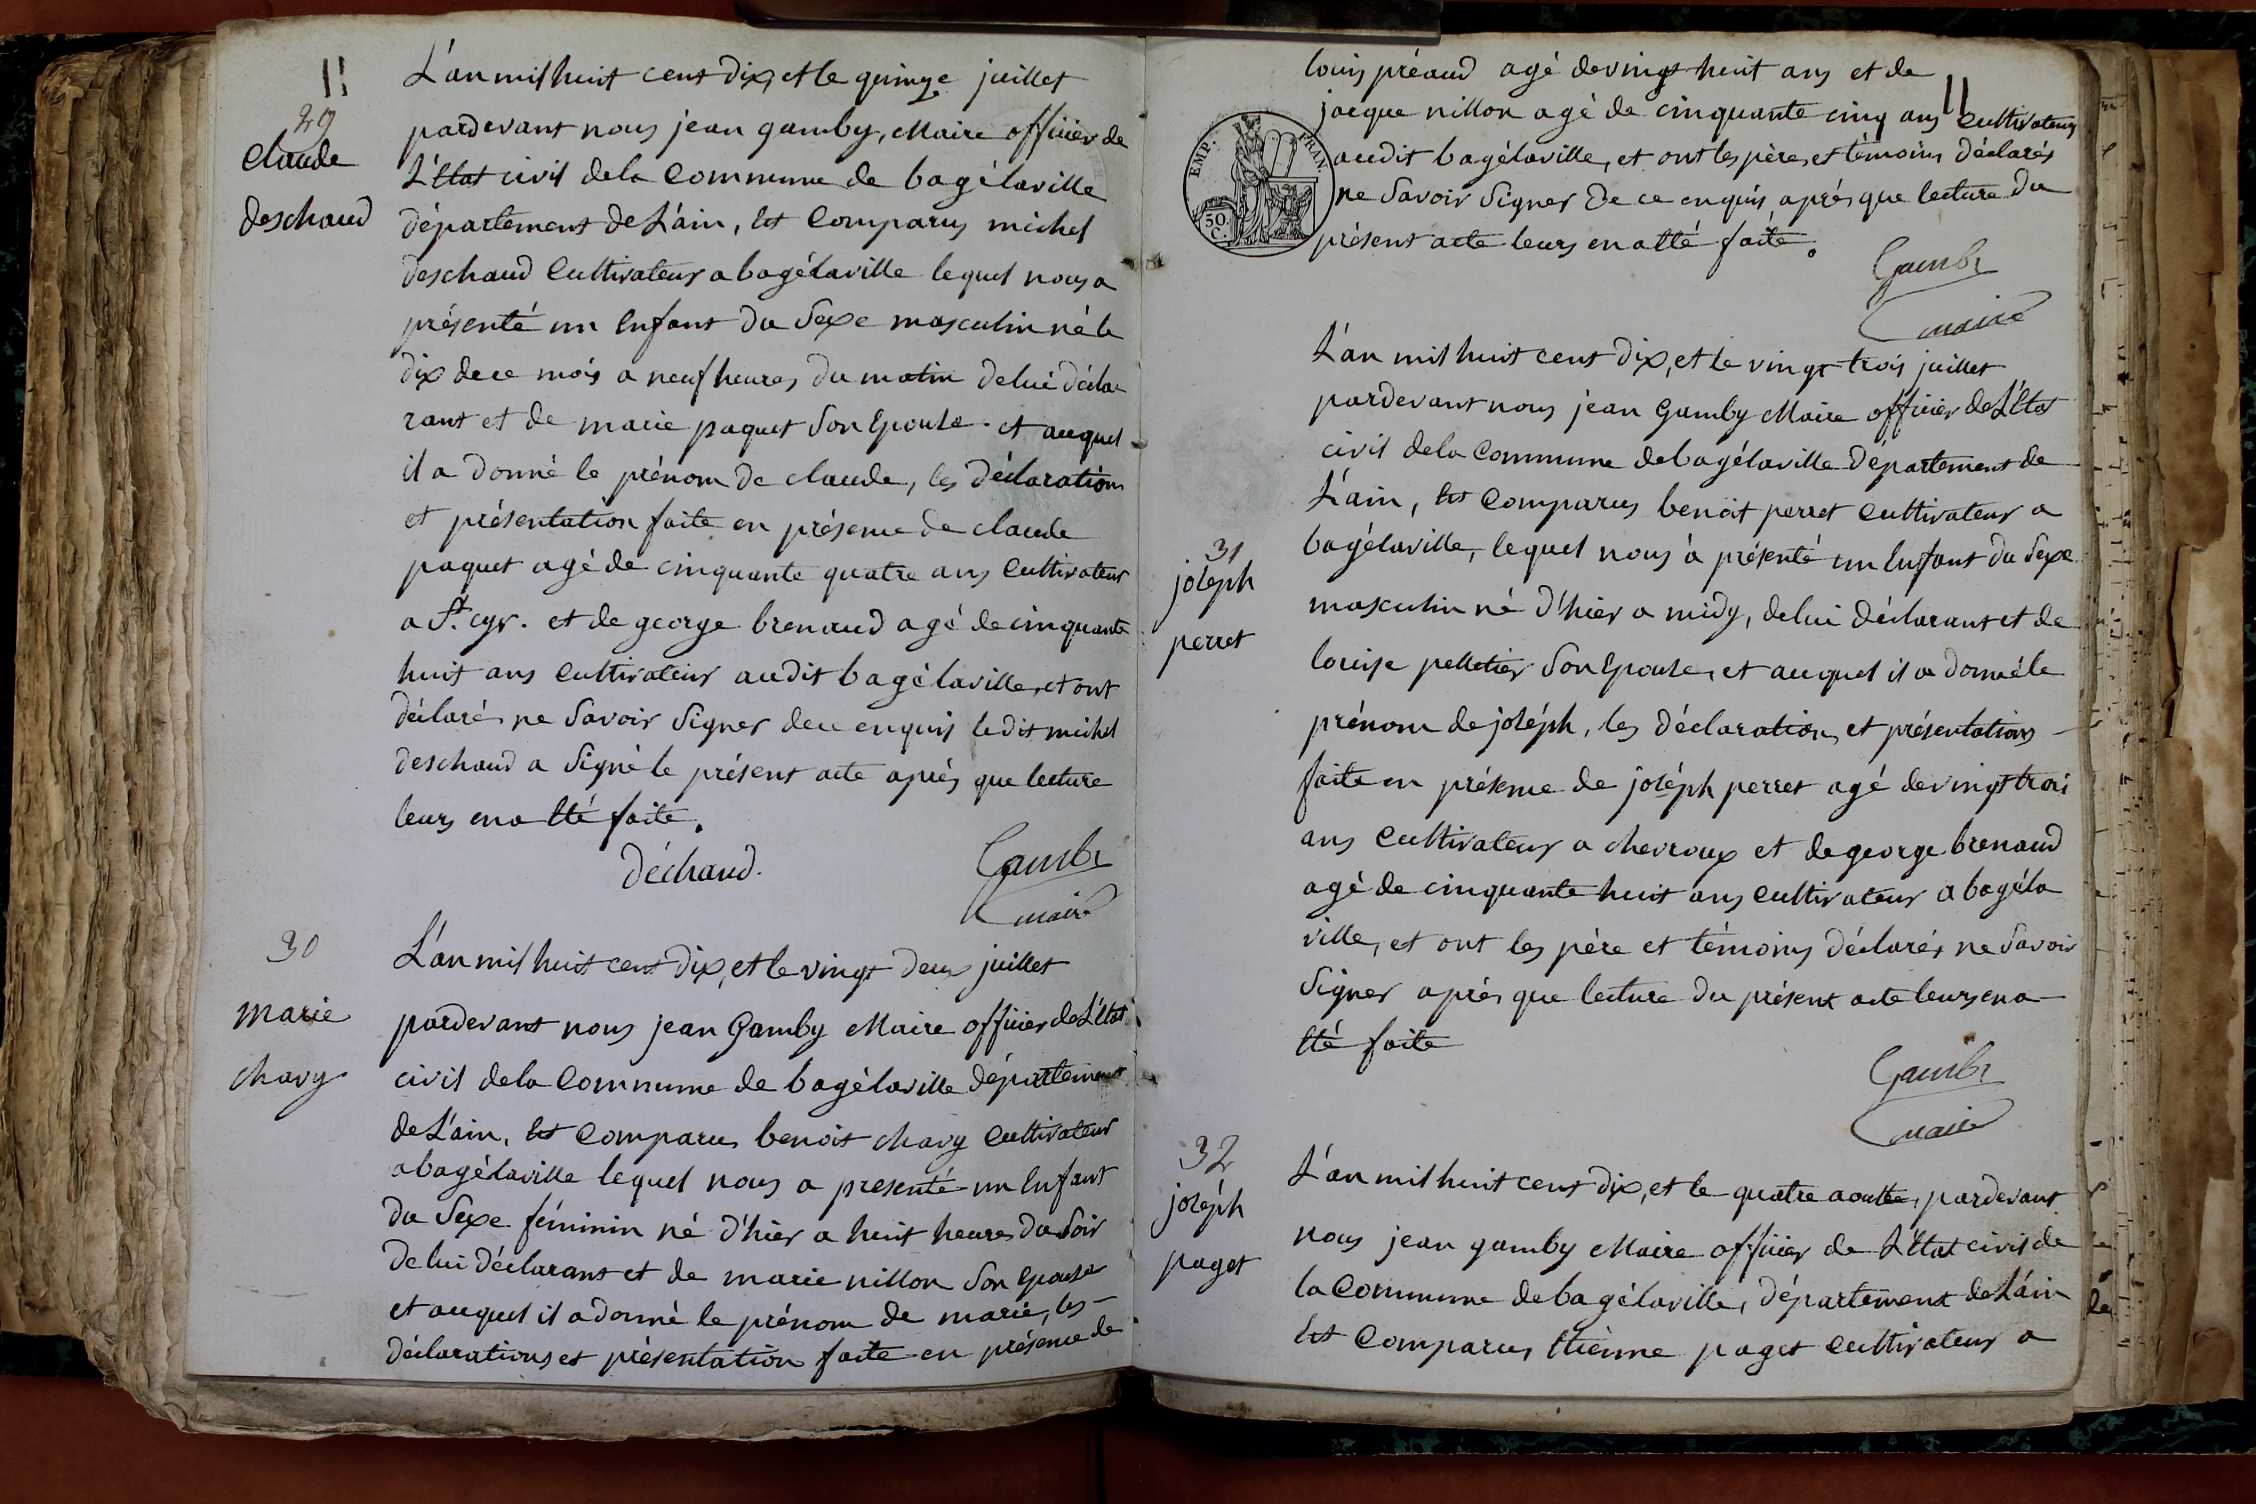 29
Claude
deschaud
L'an mil huit cent dix, et le quinze juillet
pardevant nous jean gamby, Maire officier de
L'Etat civil dela Commune de bagélaville
département de L'ain, Est Comparus michel
deschaud Cultivateur a bagélaville lequel nous a
présenté un Enfant du Sexe masculin né le
dix de ce mois a neuf heures du matin de lui décla
rant et de marie paquet Son Epouse. et auquel
il a donné le prénom de claude, les déclarations
et présentation faite en présence de claude
paquet agé de cinquante quatre ans Cultivateur
a St. cyr. et de george brenaud agé de cinquante
huit ans Cultivateur audit bagélaville, et ont
déclarés ne Savoir Signer de ce enquis ledit michel
deschaud a Signé le présent acte après que lecture
leurs en a Eté faite.
déchaud.
Gamby
maire
30
marie
chavy
L'an mil huit cent dix, et le vingt deux juillet
pardevant nous jean Gamby Maire officier de L'Etat
civil dela Commune de bagélaville département
de L'ain, Est Comparus benoit chavy Cultivateur
a bagélaville lequel nous a presenté un Enfant
du Sexe féminin né d'hier a huit heures du Soir
de lui déclarant et de marie nillon Son Epouse
et auquel il a donné le prénom de marie, les
déclarations et présentation faite en présence de
louis préaud agé de vingt huit ans et de
jacque nillon agé de cinquante cinq ans Cultivateurs
audit bagélaville, et ont les père et témoins déclarés
ne Savoir Signer de ce enquis après que lecture du
présent acte leurs en a Eté faite.
EMP. FRAN.
50.
C.
Gamby
maire
31
joséph
perret
L'an mil huit cent dix, et le vingt trois juillet
pardevant nous jean Gamby Maire officier de L'Etat
civil dela Commune de bagélaville département de
L'ain, Est Comparus benoit perret Cultivateur a
bagélaville, lequel nous à présenté un Enfant du Sexe
masculin né d'hier a midy, de lui déclarant et de
louise pelletier Son Epouse, et auquel il a donné le
prénom de joséph, les déclarations et présentations
faite en présence de joséph perret agé de vingt trois
ans Cultivateur a chevroux et de george brenaud
agé de cinquante huit ans Cultivateur a bagéla
ville, et ont les père et témoins déclarés ne Savoir
Signer après que lecture du présent acte leurs en a
Eté faite
Gamby
maire
32
joséph
paget
L'an mil huit cent dix, et le quatre aoutte, pardevant
nous jean gamby Maire officier de L'Etat civil de
la Commune de bagélaville, département de L'ain
Est Comparus Etienne paget Cultivateur a